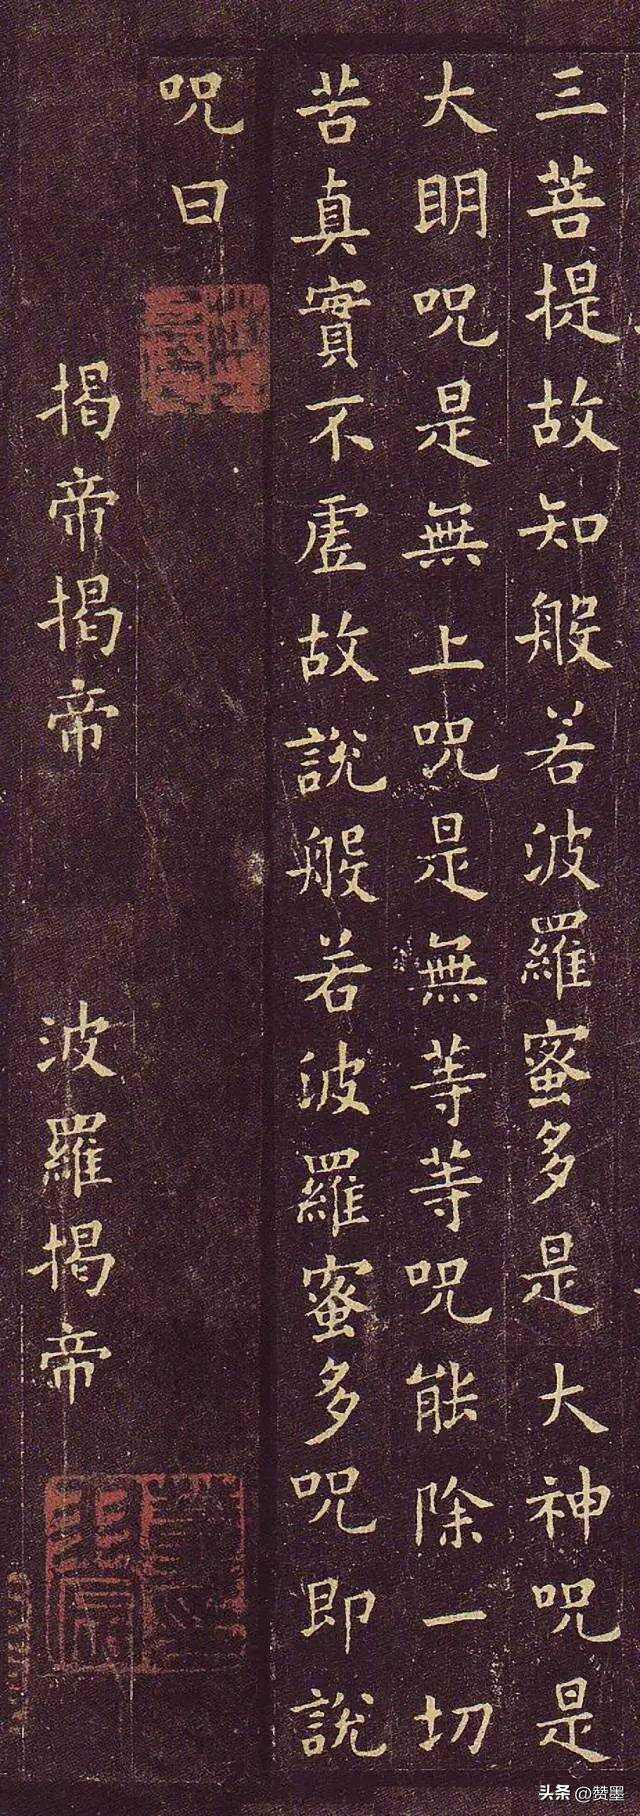 三菩提故知般若波羅蜜多是大神呪是
大明呪是無上呪是無等等呪能除一切
苦真實不虛故說般若波羅蜜多呪即說
呪曰
揭帝揭帝 波羅揭帝
头条 @赞墨